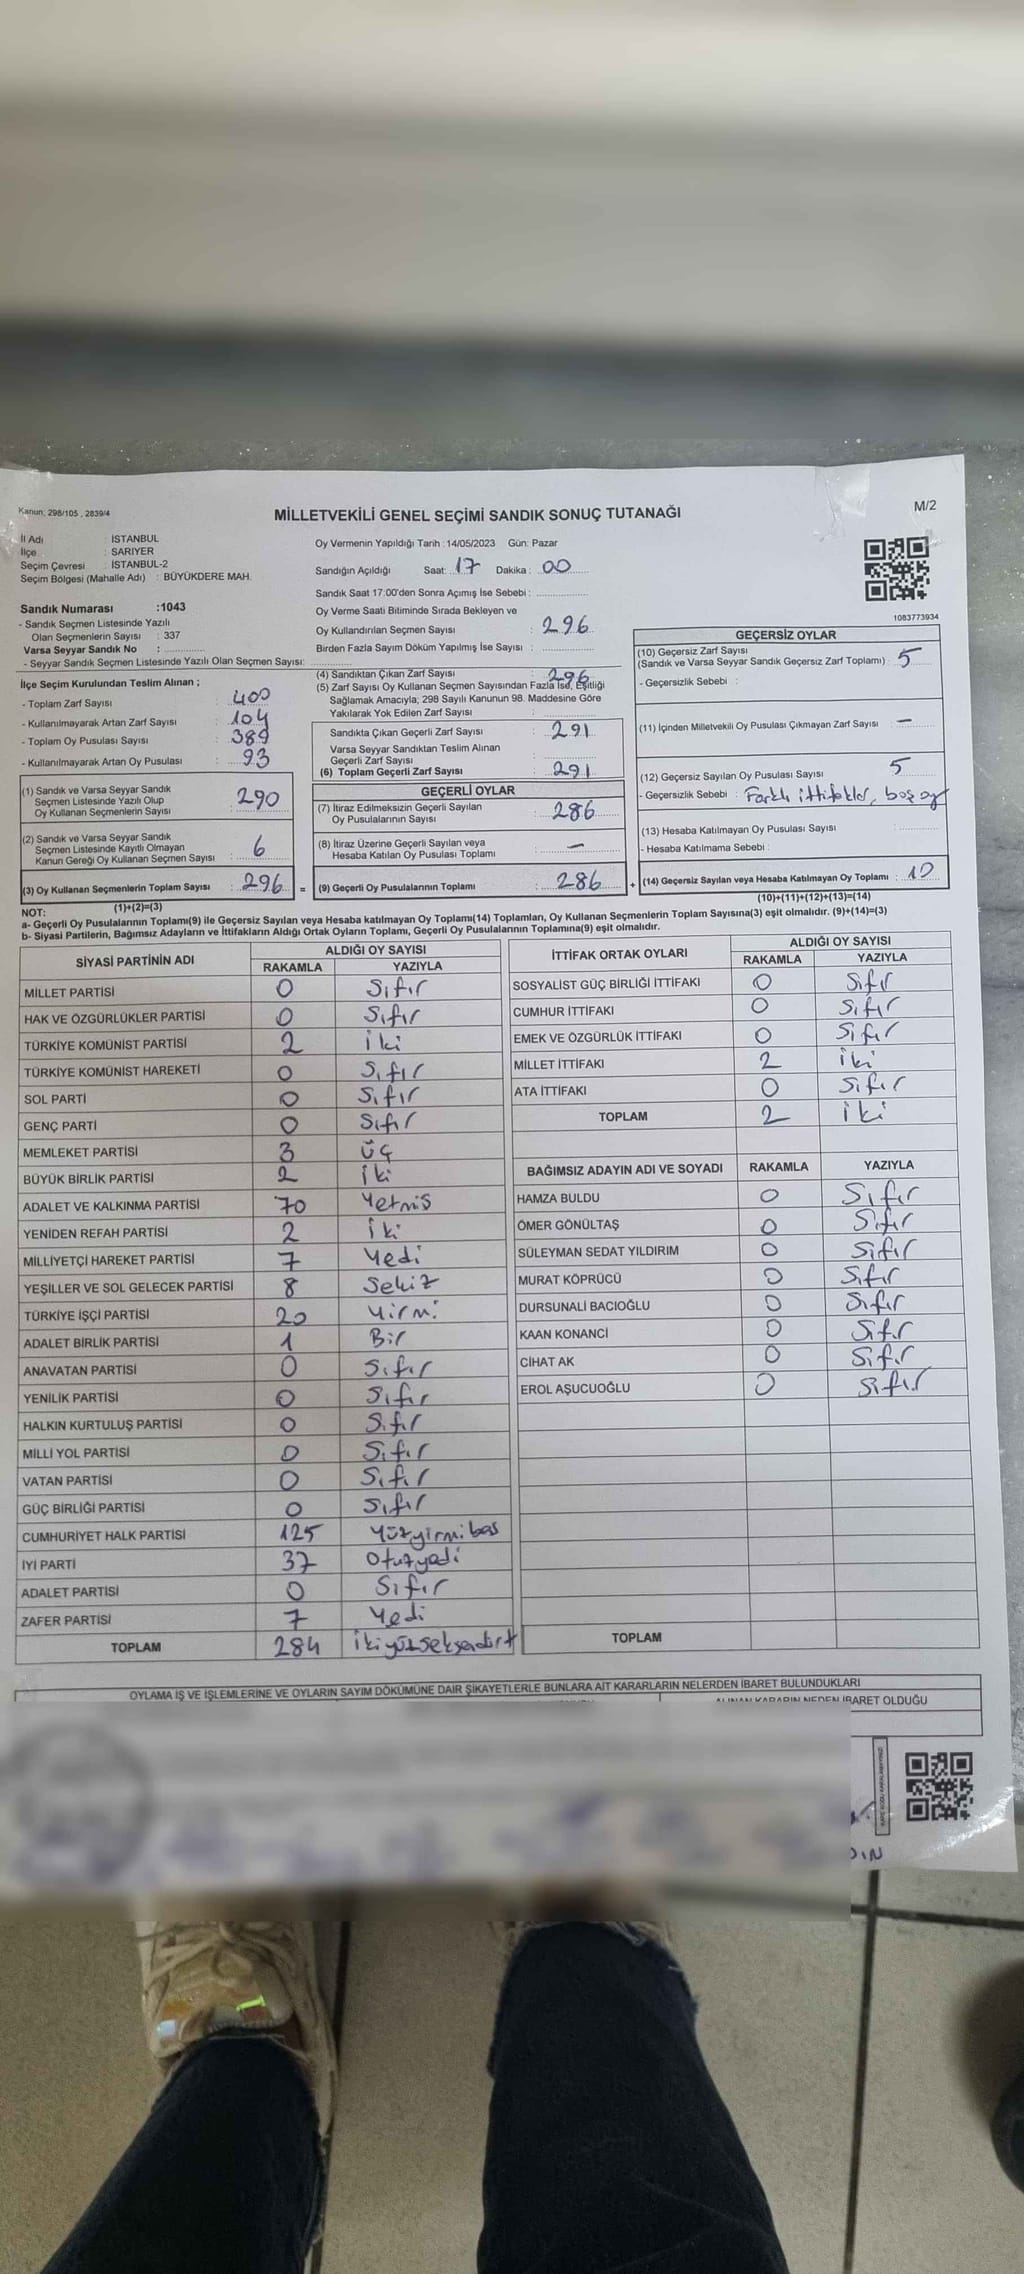 Kanun; 298/105 , 2839/4
MİLLETVEKİLİ GENEL SEÇİMİ SANDIK SONUÇ TUTANAĞI
M/2
İl Adı : İSTANBUL
İlçe : SARIYER
Seçim Çevresi : İSTANBUL-2
Seçim Bölgesi (Mahalle Adı) : BÜYÜKDERE MAH.
Oy Vermenin Yapıldığı Tarih : 14/05/2023 Gün: Pazar
Sandığın Açıldığı Saat: 17 Dakika : 00
Sandık Saat 17:00'den Sonra Açımış İse Sebebi :
1083773934
Sandık Numarası :1043
- Sandık Seçmen Listesinde Yazılı
Olan Seçmenlerin Sayısı : 337
Varsa Seyyar Sandık No :
- Seyyar Sandık Seçmen Listesinde Yazılı Olan Seçmen Sayısı:
Oy Verme Saati Bitiminde Sırada Bekleyen ve
Oy Kullandırılan Seçmen Sayısı : 296
Birden Fazla Sayım Döküm Yapılmış İse Sayısı :
İlçe Seçim Kurulundan Teslim Alınan ;
- Toplam Zarf Sayısı : 400
- Kullanılmayarak Artan Zarf Sayısı : 104
- Toplam Oy Pusulası Sayısı : 389
- Kullanılmayarak Artan Oy Pusulası : 93
(1) Sandık ve Varsa Seyyar Sandık
Seçmen Listesinde Yazılı Olup
Oy Kullanan Seçmenlerin Sayısı : 290
(2) Sandık ve Varsa Seyyar Sandık
Seçmen Listesinde Kayıtlı Olmayan
Kanun Gereği Oy Kullanan Seçmen Sayısı : 6
(3) Oy Kullanan Seçmenlerin Toplam Sayısı : 296 =
(1)+(2)=(3)
(4) Sandıktan Çıkan Zarf Sayısı : 296
(5) Zarf Sayısı Oy Kullanan Seçmen Sayısından Fazla İse, Eşitliği
Sağlamak Amacıyla; 298 Sayılı Kanunun 98. Maddesine Göre
Yakılarak Yok Edilen Zarf Sayısı :
Sandıkta Çıkan Geçerli Zarf Sayısı : 291
Varsa Seyyar Sandıktan Teslim Alınan
Geçerli Zarf Sayısı :
(6) Toplam Geçerli Zarf Sayısı : 291
GEÇERLİ OYLAR
(7) İtiraz Edilmeksizin Geçerli Sayılan
Oy Pusulalarının Sayısı : 286
(8) İtiraz Üzerine Geçerli Sayılan veya
Hesaba Katılan Oy Pusulası Toplamı : —
(9) Geçerli Oy Pusulalarının Toplamı : 286 +
GEÇERSİZ OYLAR
(10) Geçersiz Zarf Sayısı
(Sandık ve Varsa Seyyar Sandık Geçersiz Zarf Toplamı) : 5
- Geçersizlik Sebebi :
(11) İçinden Milletvekili Oy Pusulası Çıkmayan Zarf Sayısı : —
(12) Geçersiz Sayılan Oy Pusulası Sayısı : 5
- Geçersizlik Sebebi : Farklı ittifaklar, boş oy
(13) Hesaba Katılmayan Oy Pusulası Sayısı :
- Hesaba Katılmama Sebebi :
(14) Geçersiz Sayılan veya Hesaba Katılmayan Oy Toplamı : 10
(10)+(11)+(12)+(13)=(14)
NOT:
a- Geçerli Oy Pusulalarının Toplamı(9) ile Geçersiz Sayılan veya Hesaba katılmayan Oy Toplamı(14) Toplamları, Oy Kullanan Seçmenlerin Toplam Sayısına(3) eşit olmalıdır. (9)+(14)=(3)
b- Siyasi Partilerin, Bağımsız Adayların ve İttifakların Aldığı Ortak Oyların Toplamı, Geçerli Oy Pusulalarının Toplamına(9) eşit olmalıdır.
SİYASİ PARTİNİN ADI ALDIĞI OY SAYISI
RAKAMLA YAZIYLA
MİLLET PARTİSİ 0 Sıfır
HAK VE ÖZGÜRLÜKLER PARTİSİ 0 Sıfır
TÜRKİYE KOMÜNİST PARTİSİ 2 iki
TÜRKİYE KOMÜNİST HAREKETİ 0 Sıfır
SOL PARTİ 0 Sıfır
GENÇ PARTİ 0 Sıfır
MEMLEKET PARTİSİ 3 üç
BÜYÜK BİRLİK PARTİSİ 2 iki
ADALET VE KALKINMA PARTİSİ 70 Yetmiş
YENİDEN REFAH PARTİSİ 2 iki
MİLLİYETÇİ HAREKET PARTİSİ 7 Yedi
YEŞİLLER VE SOL GELECEK PARTİSİ 8 Sekiz
TÜRKİYE İŞÇİ PARTİSİ 20 Yirmi
ADALET BİRLİK PARTİSİ 1 Bir
ANAVATAN PARTİSİ 0 Sıfır
YENİLİK PARTİSİ 0 Sıfır
HALKIN KURTULUŞ PARTİSİ 0 Sıfır
MİLLİ YOL PARTİSİ 0 Sıfır
VATAN PARTİSİ 0 Sıfır
GÜÇ BİRLİĞİ PARTİSİ 0 Sıfır
CUMHURİYET HALK PARTİSİ 125 Yüzyirmibeş
İYİ PARTİ 37 Otuzyedi
ADALET PARTİSİ 0 Sıfır
ZAFER PARTİSİ 7 Yedi
TOPLAM 284 ikiyüzseksendört
İTTİFAK ORTAK OYLARI ALDIĞI OY SAYISI
RAKAMLA YAZIYLA
SOSYALİST GÜÇ BİRLİĞİ İTTİFAKI 0 Sıfır
CUMHUR İTTİFAKI 0 Sıfır
EMEK VE ÖZGÜRLÜK İTTİFAKI 0 Sıfır
MİLLET İTTİFAKI 2 iki
ATA İTTİFAKI 0 Sıfır
TOPLAM 2 iki
BAĞIMSIZ ADAYIN ADI VE SOYADI RAKAMLA YAZIYLA
HAMZA BULDU 0 Sıfır
ÖMER GÖNÜLTAŞ 0 Sıfır
SÜLEYMAN SEDAT YILDIRIM 0 Sıfır
MURAT KÖPRÜCÜ 0 Sıfır
DURSUNALİ BACIOĞLU 0 Sıfır
KAAN KONANCİ 0 Sıfır
CİHAT AK 0 Sıfır
EROL AŞUCUOĞLU 0 Sıfır
TOPLAM
OYLAMA İŞ VE İŞLEMLERİNE VE OYLARIN SAYIM DÖKÜMÜNE DAİR ŞİKAYETLERLE BUNLARA AİT KARARLARIN NELERDEN İBARET BULUNDUKLARI
ALINAN KARARIN NEDEN İBARET OLDUĞU